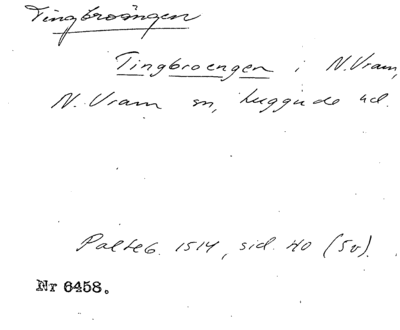 Tingbroängen
Tingbroengen i N. Vram,
N. Vram sn, Luggude hd.
Palteb. 1514, sid. 40 (Sv).
Nr 6458.